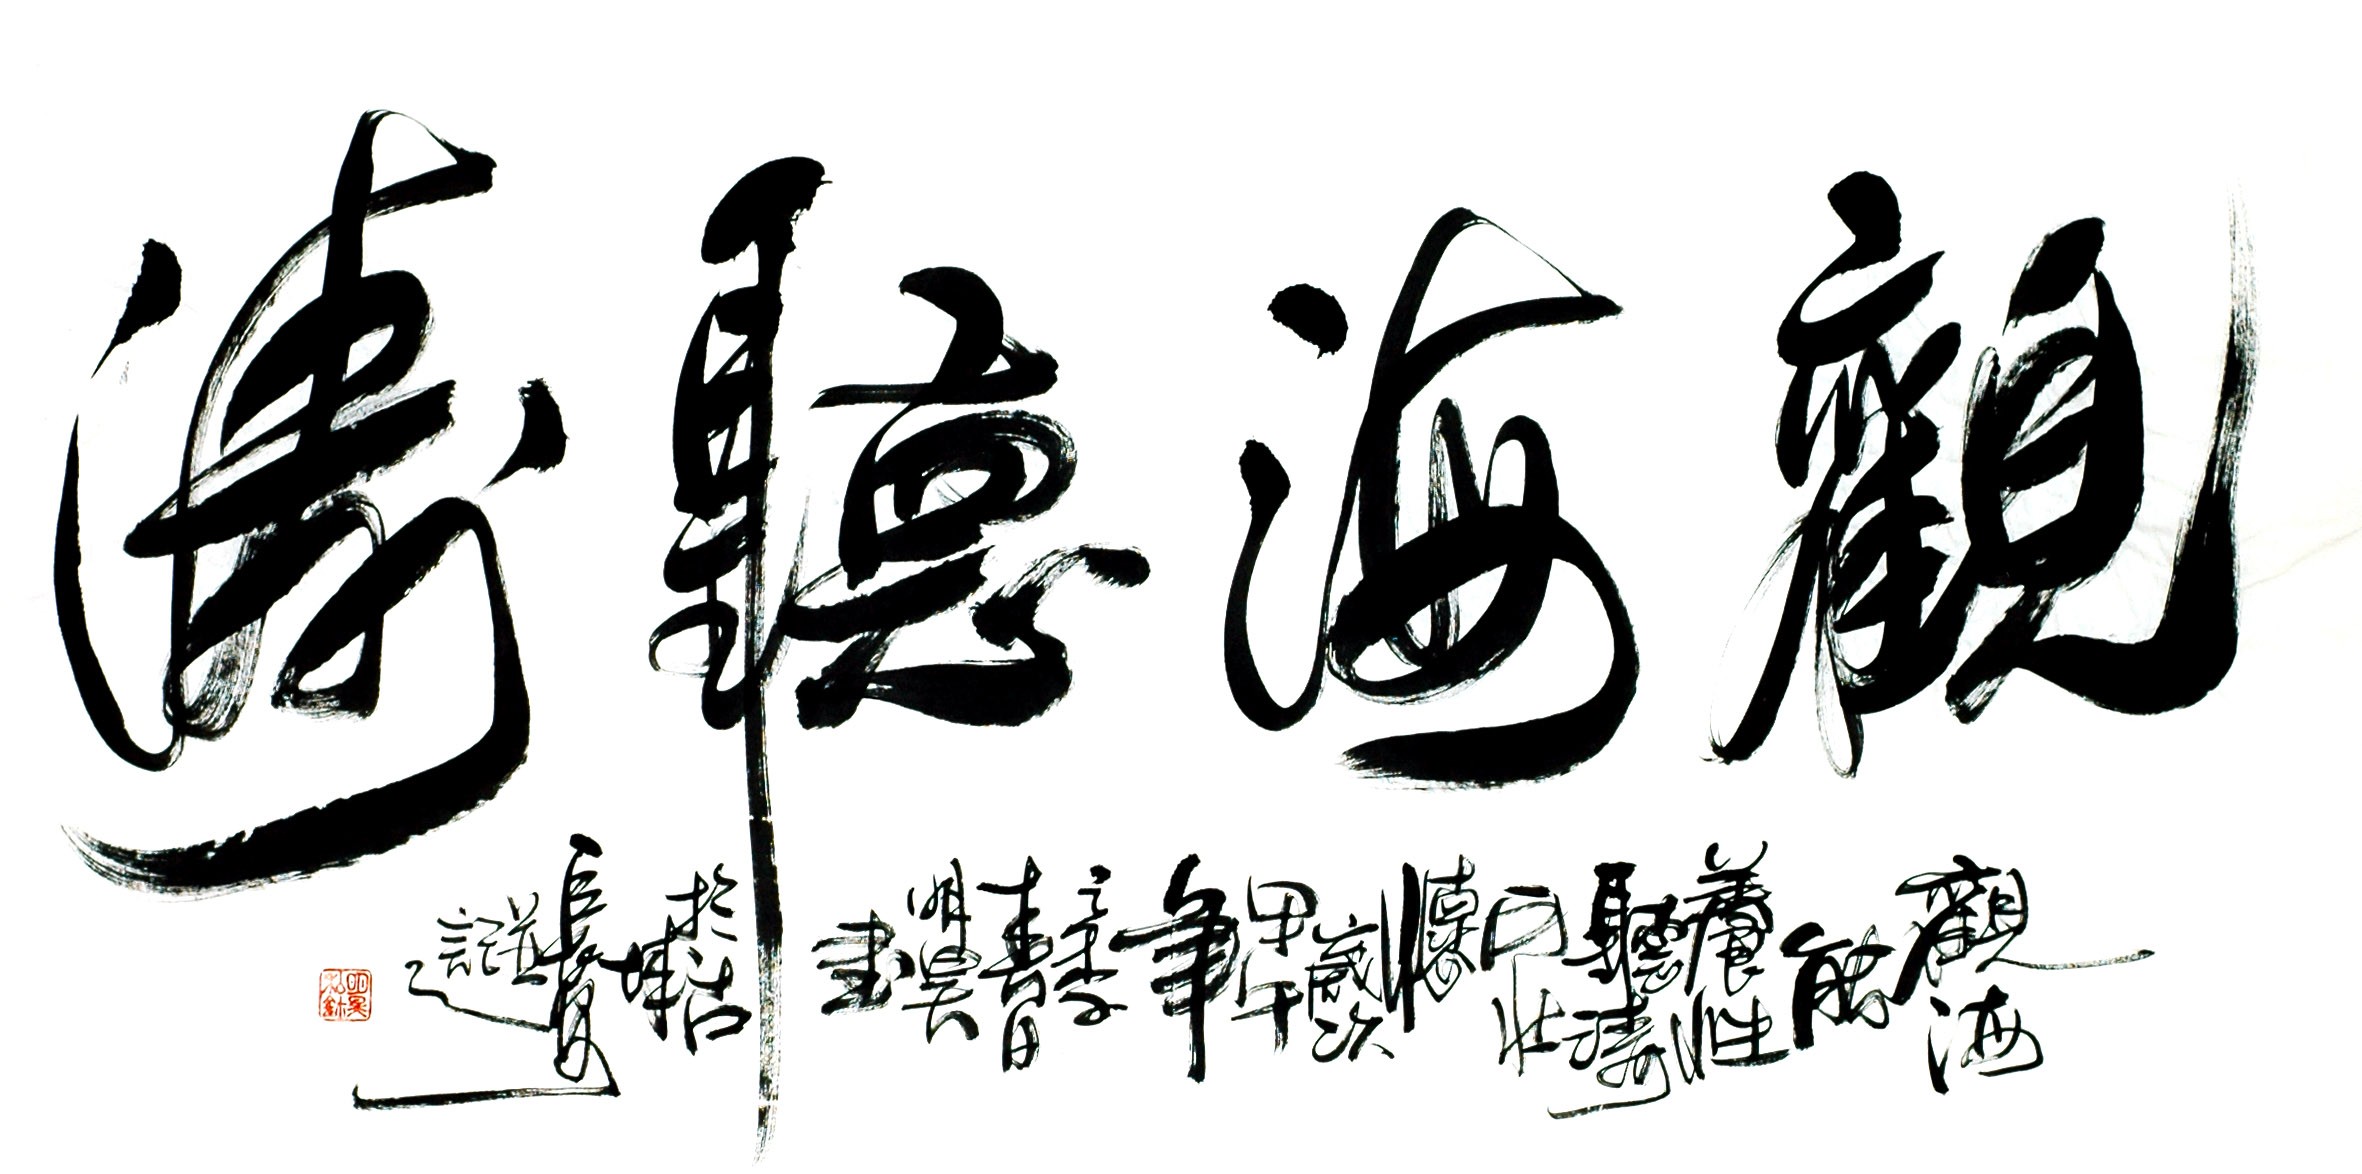 觀海聽濤
觀海
能
養性
聽濤
可壯
懷
歲次
甲午
年
之季
春日
明昊
書
於古
城
長安
並
記之